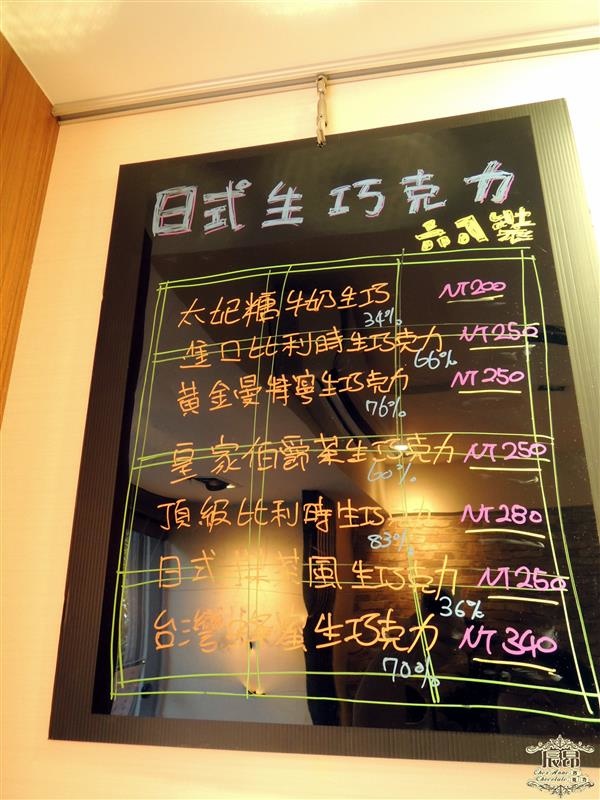 日式生巧克力
六入裝
太妃糖牛奶生巧 NT200
34%
進口比利時生巧克力 NT250
66%
黃金曼特寧生巧克力 NT250
76%
皇家伯爵茶生巧克力 NT250
60%
頂級比利時生巧克力 NT280
83%
日式抹茶風生巧克力 NT250
36%
台灣蜂蜜生巧克力 NT340
70%
Chez Anne
Chocolate